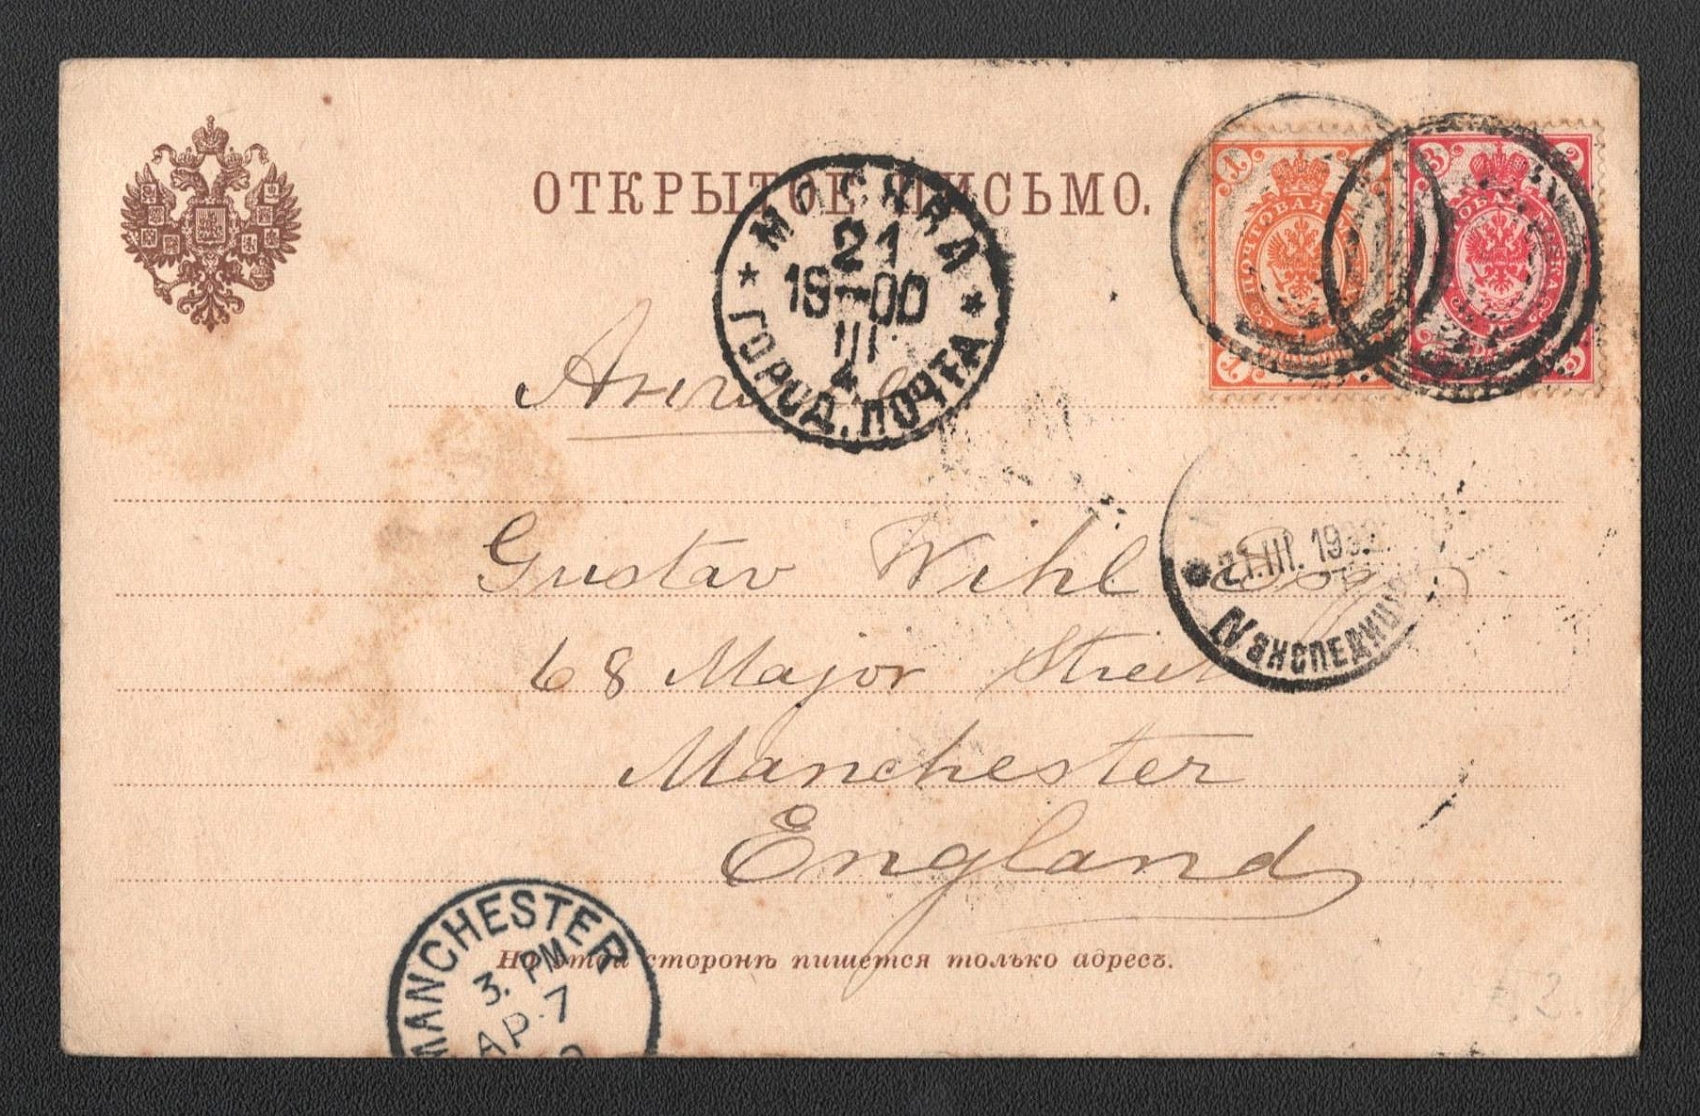 ОТКРЫТОЕ ПИСЬМО.
МОСКВА
21
19—00
III
4
ГОРОД. ПОЧТА
1
ПОЧТОВАЯ
3
21.III.1900
IV ЭКСПЕДИЦИЯ
Gustav Wihl Esq
68 Major Street
Manchester
England
На этой сторонѣ пишется только адресъ.
MANCHESTER
3. PM
AP 7